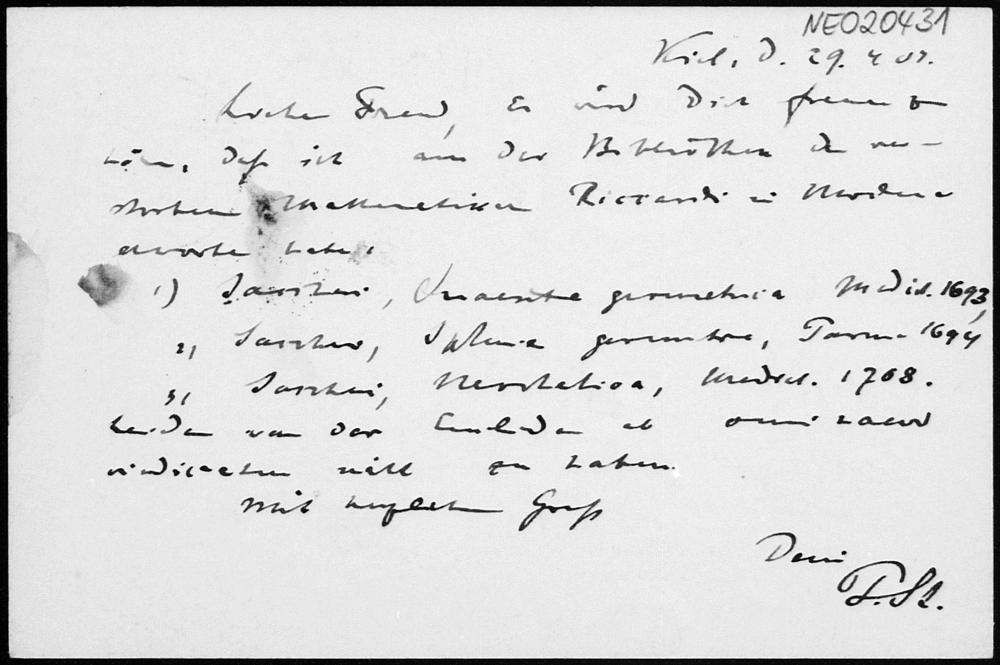 NEO20431
Kiel, d. 29. 4 07.
Lieber Freund, Es wird Dich freuen zu
hören, daß ich aus der Bibliothek des ver-
storbenen Mathematikers Riccardi in Modena
erworben habe:
1) Saccheri, Quaesita geometrica Mediol. 1693,
2) Saccheri, Sphinx geometra, Parma 1694
3) Saccheri, Neostatica, Mediol. 1708.
Leider war der Euclides ab omni naevo
vindicatus nicht zu haben.
Mit herzlichem Gruß
Dein
P. St.